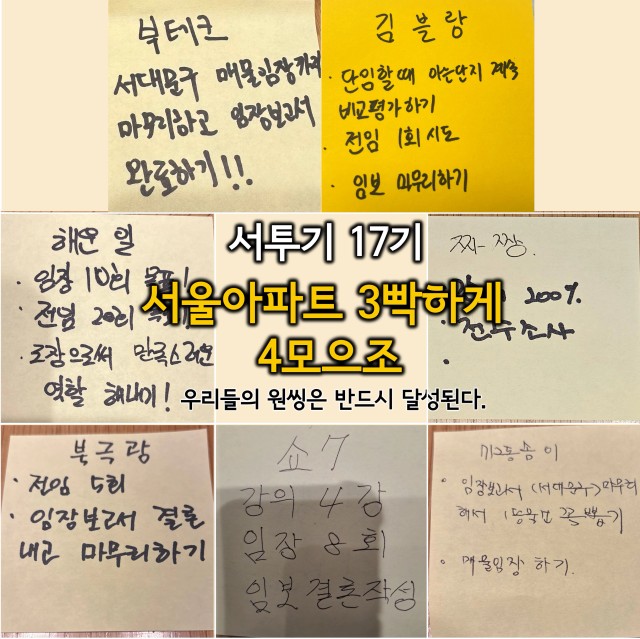 북테크
서대문구 매물임장까지
마무리하고 임장보고서
완료하기!!
김블랑
· 단임할때 아는단지 계속
비교평가하기
· 전임 1회 시도
· 임보 마무리하기
해온일
· 임장 10회 목표!
· 전임 20회
· 조장으로써 만족스러운
역할 해내기!
서투기 17기
서울아파트 3빡하게
4모으조
우리들의 원씽은 반드시 달성된다.
찌-짱.
200%
· 전수조사
·
북극광
· 전임 5회
· 임장보고서 결론
내고 마무리하기
쇼7
강의 4강
임장 8회
임보 결론작성
· 임장보고서 (서대문구) 마무리
해서 1등뽑기 꼭
· 매물임장 하기.